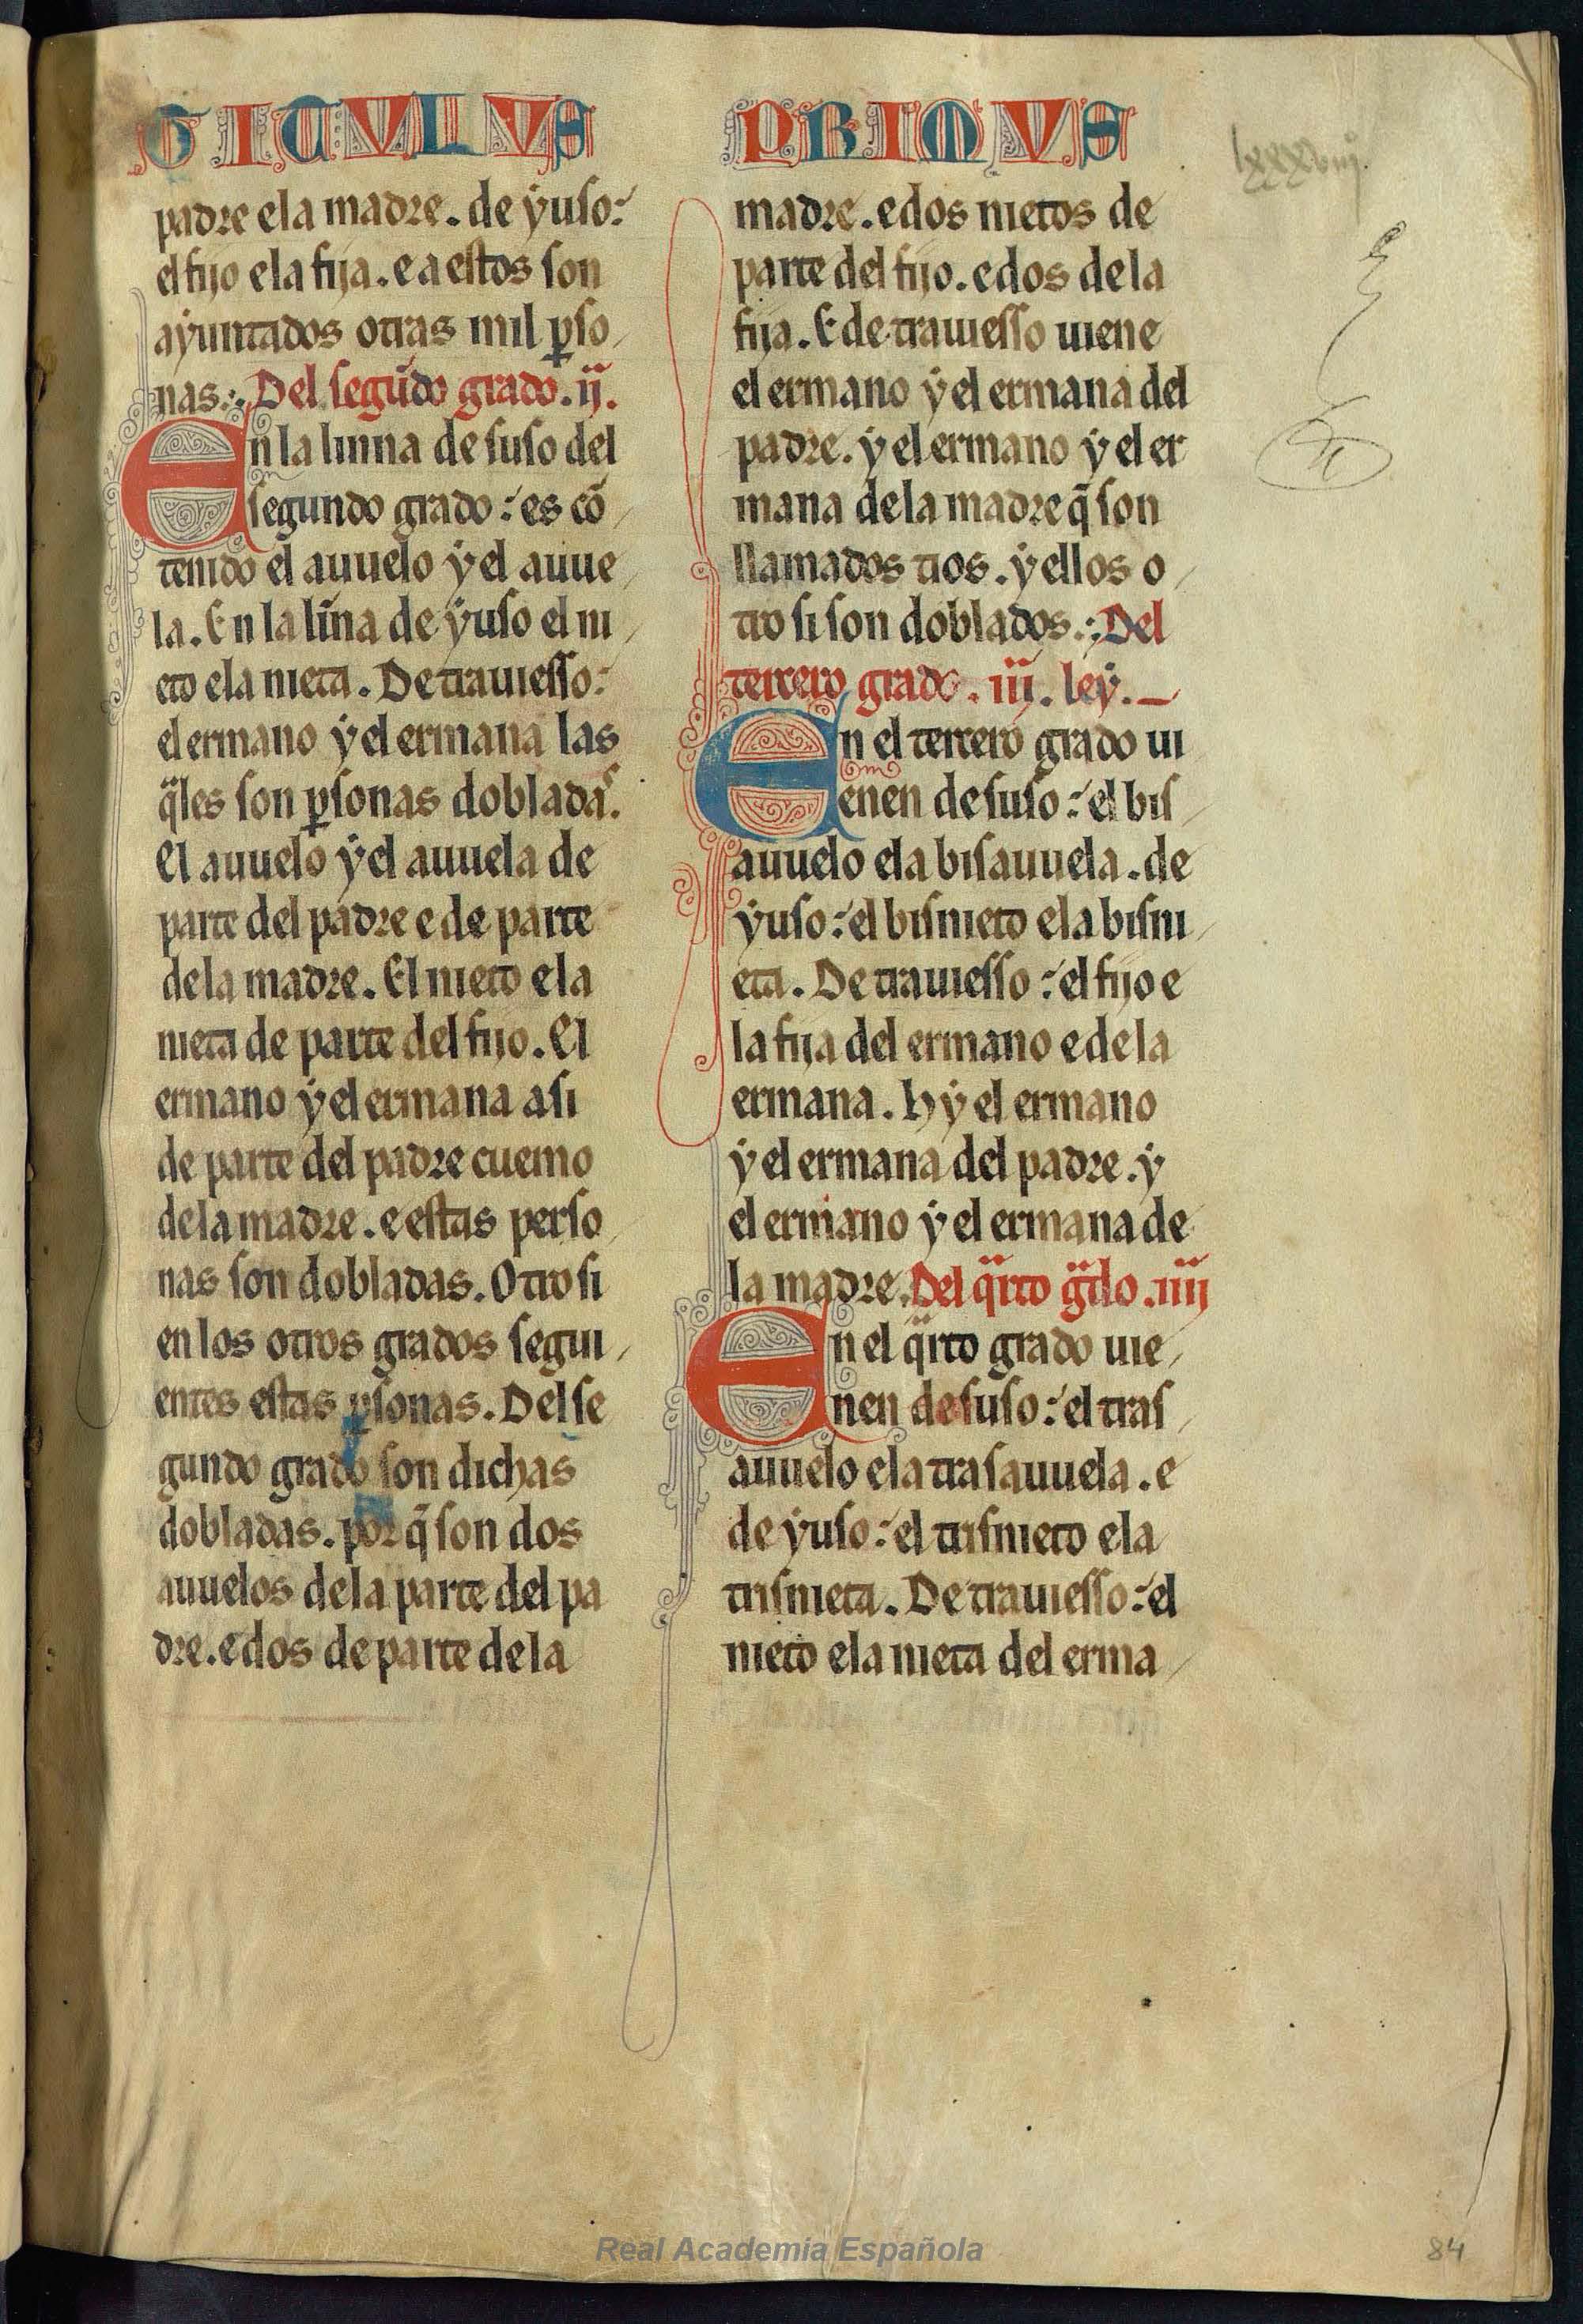 TITULUS PRIMUS
lxxxviiij.
padre e la madre. de yuso:
el fijo e la fija. e a estos son
ayuntados otras mil ꝑso
nas:. Del segũdo grado. ij.
En la linna de suso del
segundo grado: es cõ
tenido el auuelo y el auue
la. En la lĩna de yuso el ni
eto e la nieta. De trauiesso:
el ermano y el ermana las
q̃les son ꝑsonas dobladas.
El auuelo y el auuela de
parte del padre e de parte
de la madre. El nieto e la
nieta de parte del fijo. El
ermano y el ermana asi
de parte del padre cuemo
de la madre. e estas perso
nas son dobladas. Otro si
en los otros grados segui
entes estas ꝑsonas. Del se
gundo grado son dichas
dobladas. por q̃ son dos
auuelos de la parte del pa
dre. e dos de parte de la
madre. e dos nietos de
parte del fijo. e dos de la
fija. E de trauiesso uiene
el ermano y el ermana del
padre. y el ermano y el er
mana de la madre q̃ son
llamados tios. y ellos o
tro si son doblados:. Del
tercero grado. iij. ley.
En el tercero grado ui
enen de suso: el bis
auuelo e la bisauuela. de
yuso: el bisnieto e la bisni
eta. De trauiesso: el fijo e
la fija del ermano e de la
ermana. Hy el ermano
y el ermana del padre. y
el ermano y el ermana de
la madre. Del q̃rto g̃do. iiij
En el q̃rto grado uie
nen de suso: el tras
auuelo e la trasauuela. e
de yuso: el trisnieto e la
trisnieta. De trauiesso: el
nieto e la nieta del erma
Real Academia Española
84